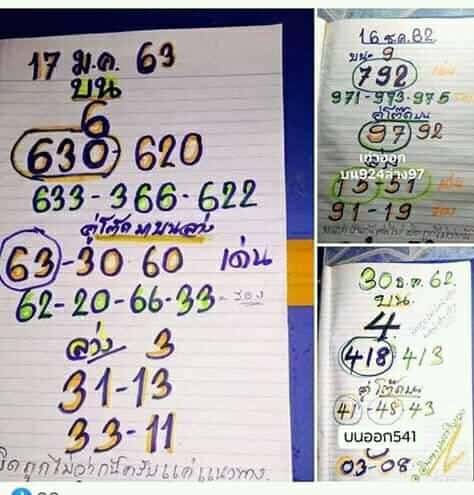 17 ม.ค. 63
บน
6
630-620
633-366-622
คู่โต๊ดบนล่าง
63-30-60 เด่น
62-20-66-33-รอง
ล่าง 3
31-13
33-11
16 ธ.ค. 62
บน-9
792
971-993-975
คู่โต๊ดบน
97 92
บน924ล่าง97
15-51
91-19 รอง
30 ธ.ค. 62
บน
4
418 413
คู่โต๊ดบน
41-48-43
บนออก541
03-08